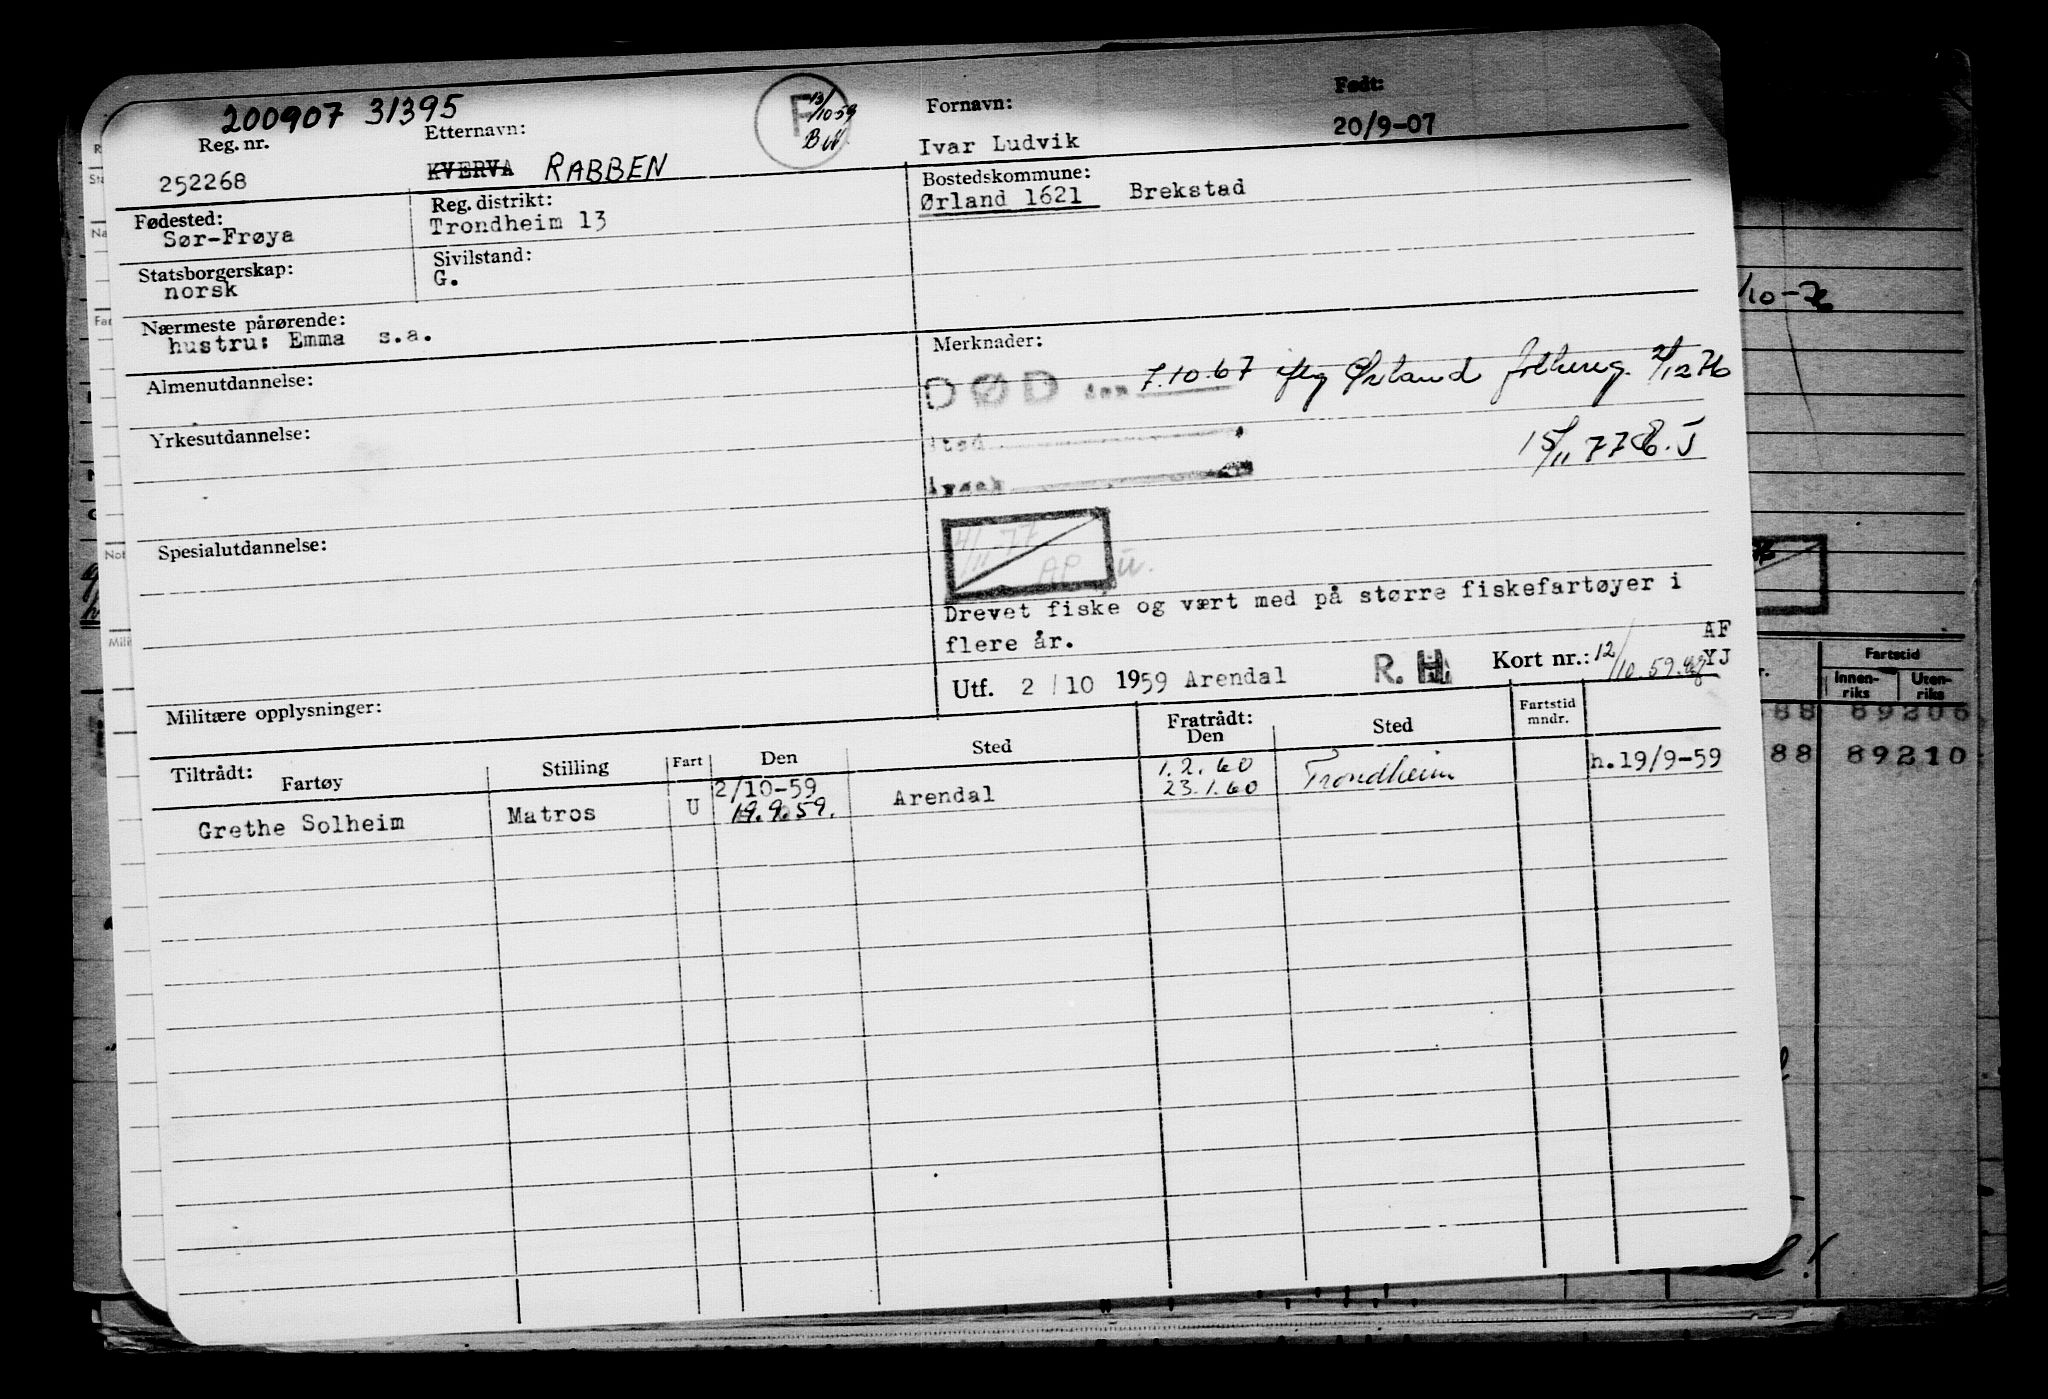 200907 31395
Reg. nr.
252268
Etternavn:
KVERVA RABBEN
F
13/10 59
Fornavn:
Ivar Ludvik
Født:
20/9-07
Fødested:
Sør-Frøya
Reg. distrikt:
Trondheim 13
Bostedskommune:
Ørland 1621 Brekstad
Statsborgerskap:
norsk
Sivilstand:
G.
Nærmeste pårørende:
hustru: Emma s.a.
Almenutdannelse:
Yrkesutdannelse:
Spesialutdannelse:
Merknader:
DØD den 7.10.67 iflg Ørland 2/12 76
sted
15/11 77
4/11-77
AP
Drevet fiske og vært med på større fiskefartøyer i
flere år.
Utf. 2/10 1959 Arendal R. H. Kort nr.: 12/10.59. AF
YJ
Militære opplysninger:
Tiltrådt:
Fartøy Stilling Fart Den Sted Fratrådt: Den Sted Fartstid mndr.
2/10-59 1.2.60 h.19/9-59
Grethe Solheim Matros U 19.9.59. Arendal 23.1.60 Trondheim
/10-76
Fartstid
Innen-riks Uten-riks
88 89206
88 89210